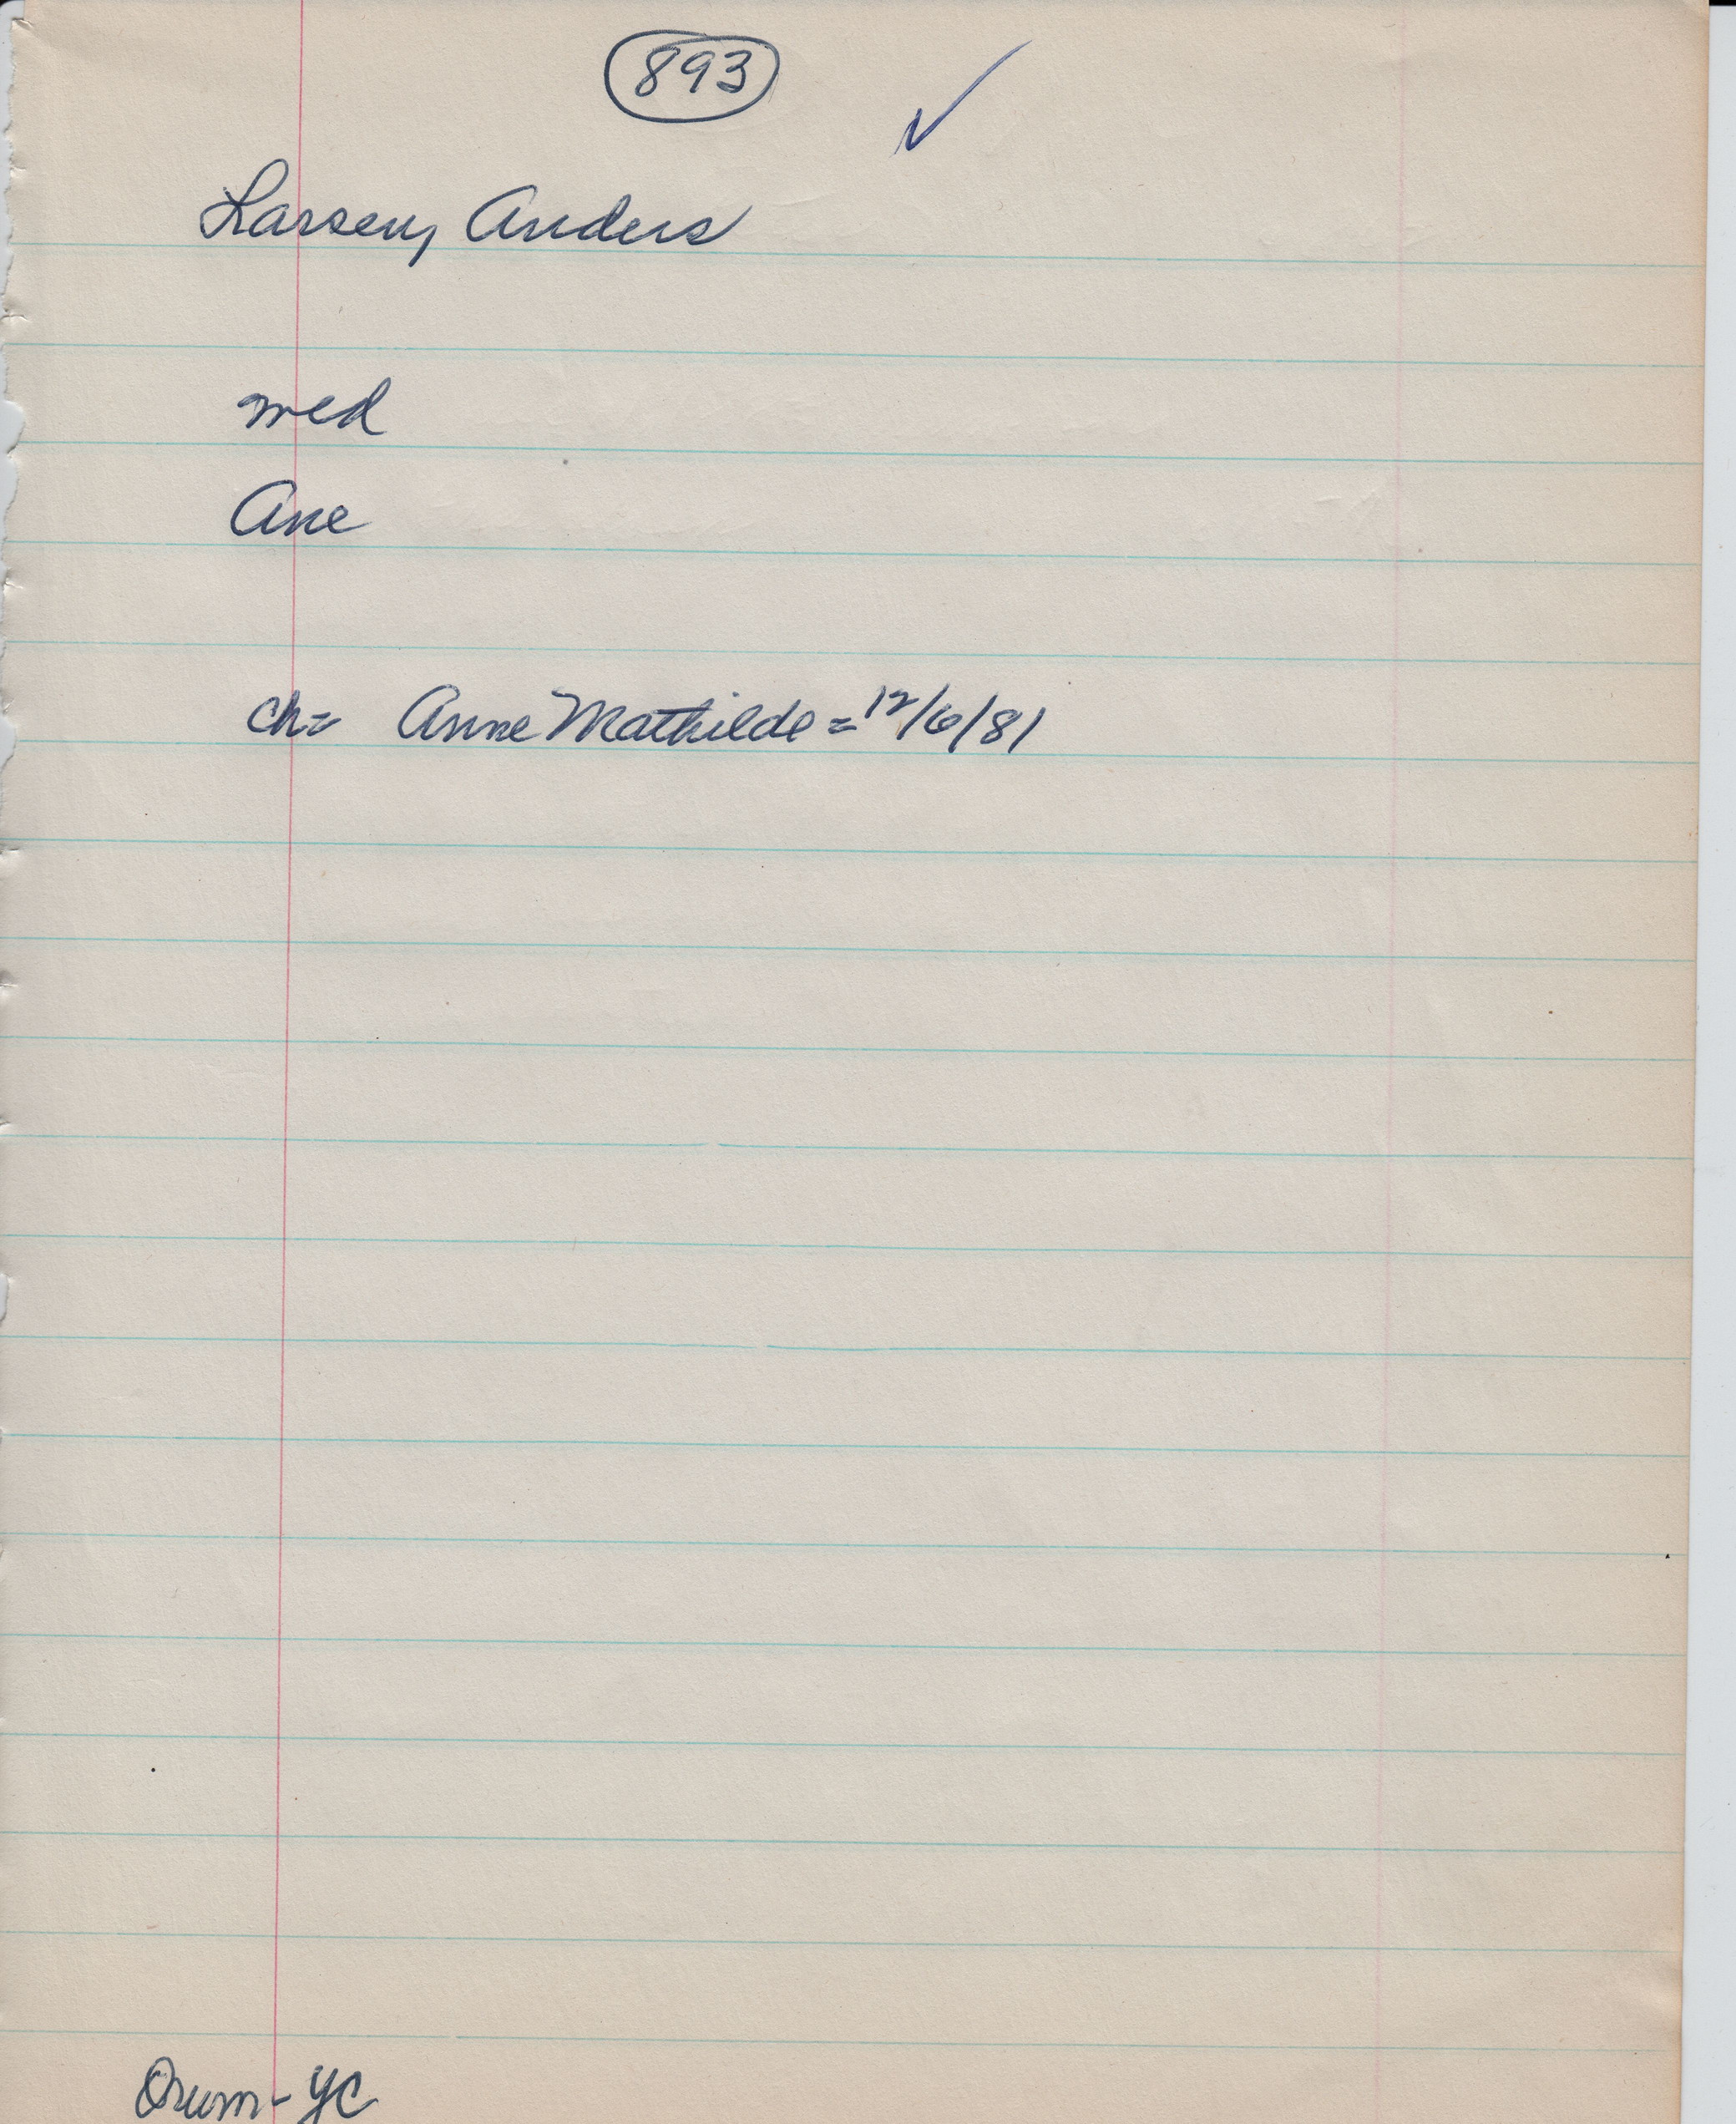 893 ✓
Larsen, Anders
med
Ane
ch= Anne Mathilde = 12/6/81
Orum - YC